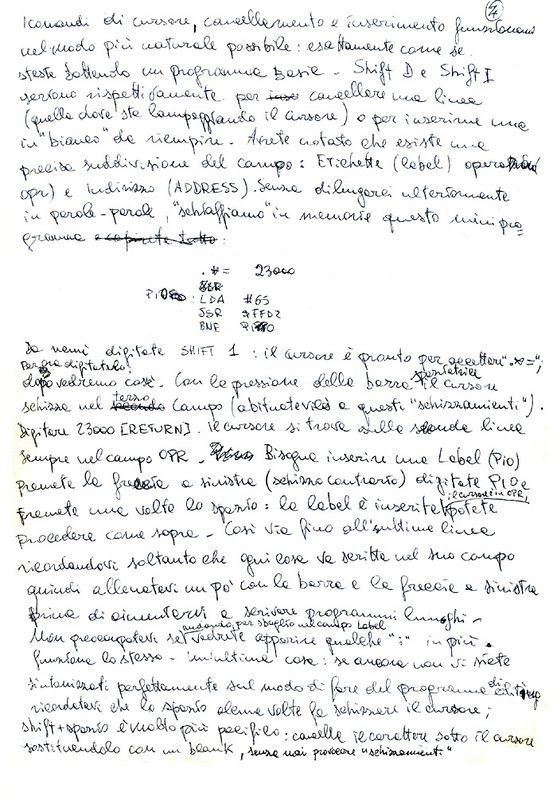 7
I comandi di cursore, cancellamento e inserimento funzionano
nel modo più naturale possibile: esattamente come se
steste battendo un programma basic. Shift D e Shift I
servono rispettivamente per cancellare una linea
(quella dove sta lampeggiando il cursore) o per inserirne una
in "bianco" da riempire. Avrete notato che esiste una
precisa suddivisione del campo: Etichetta (label) 
opr) e indirizzo (ADDRESS). Senza dilungarci ulteriormente
in parole-parole, "schiaffiamo" in memoria questo minipro=
gramma :
. *= 23000
PiO : LDA #65
JSR $FFD2
BNE PiO
digitate SHIFT 1 : il cursore è pronto per accettare ". *=";
Per ora digitatelo!
dopo vedremo cos'è. Con la pressione della barra spaziatrice il cursore
schizza nel terzo campo (abituatevi a questi "schizzamenti").
Digitare 23000 [RETURN]. Il cursore si trova sulla seconda linea
sempre nel campo OPR. Bisogna inserire una Label (Pio)
premete la freccia a sinistra (schizzo contrario) digitate PIO e
premete una volta lo spazio: la label è inserita (il cursore in OPR) potete
procedere come sopra. Così via fino all'ultima linea
ricordandovi soltanto che ogni cosa va scritta nel suo campo
quindi allenatevi un po' con la barra e la freccia a sinistra
prima di cimentarvi a scrivere programmi lunghi.
Non preoccupatevi se andando per sbaglio nel campo Label vedrete apparire qualche ":" in più.
funziona lo stesso. un'ultima cosa: se ancora non vi siete
sintonizzati perfettamente sul modo di fare del programma di editing
ricordatevi che lo spazio alcune volte fa schizzare il cursore;
shift+spazio è molto più pacifico: cancella il carattere sotto il cursore
sostituendolo con un blank, senza mai provocare "schizzamenti"